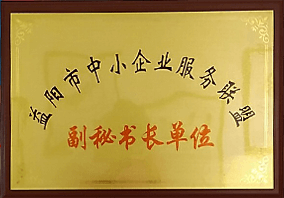 益阳市中小企业服务联盟
副秘书长单位